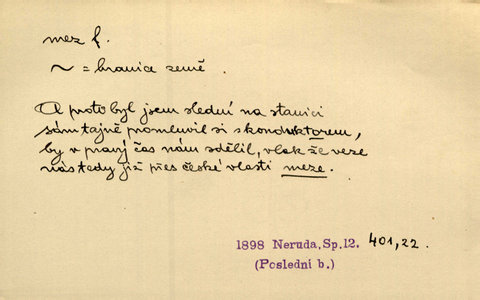 mez f.
~ = hranice země.
A proto byl jsem slední na stanici
sám tajně promluvil si s konduktorem,
by v pravý čas nám sdělil, vlak že veze
nás tedy již přes české vlasti meze.
1898 Neruda, Sp.12. 401,22.
(Poslední b.)